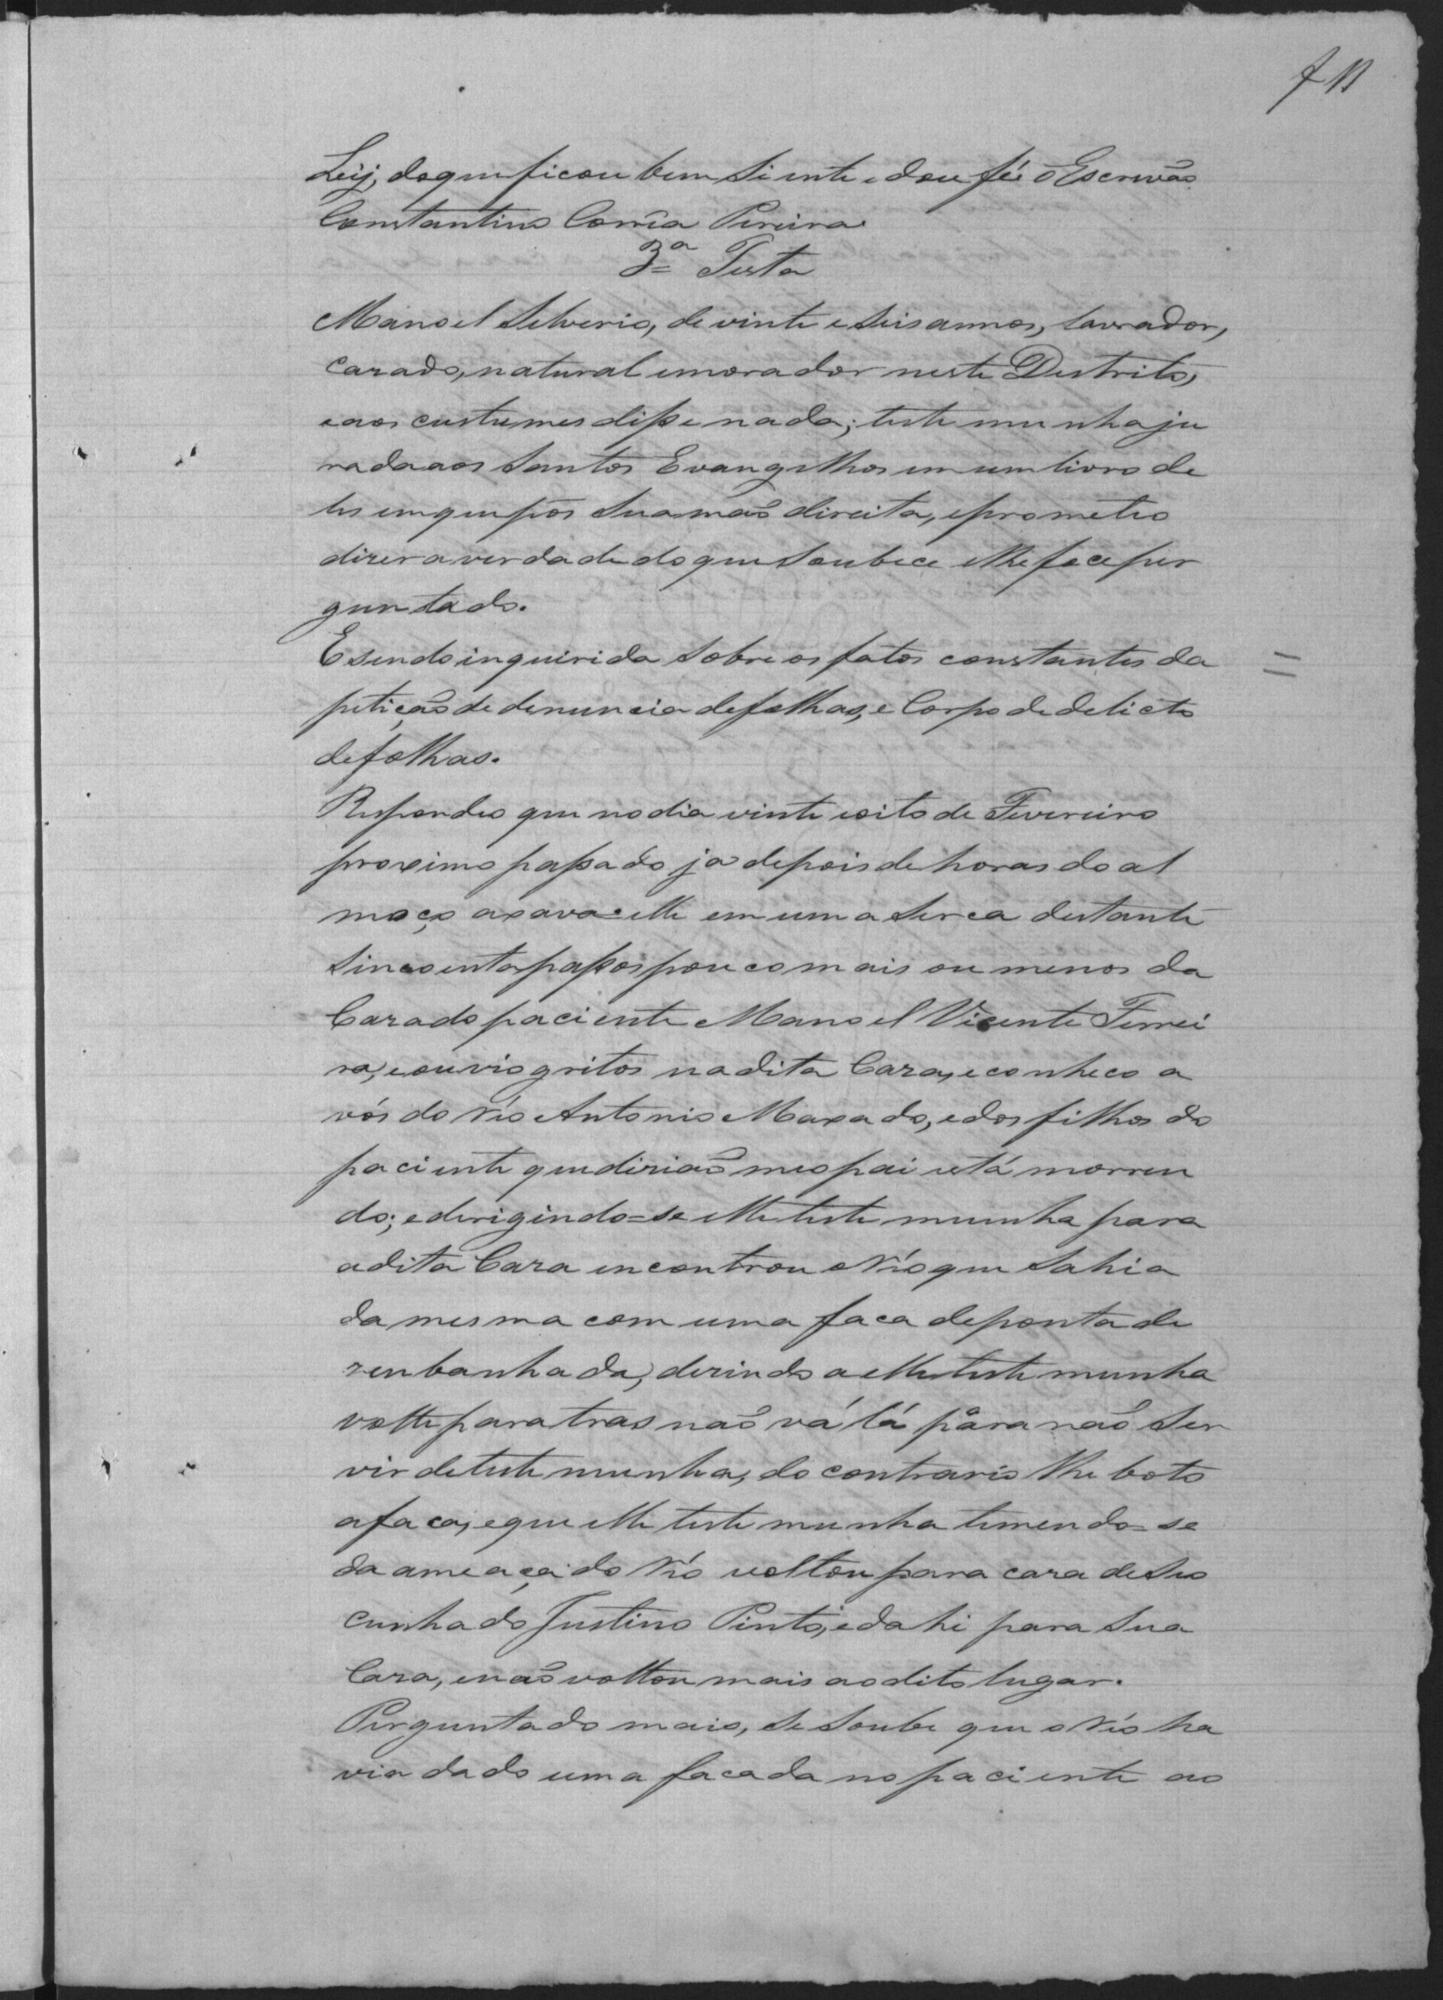 f 11
Leij, do que ficou bem siente e dou fé o Escrivão
Constantino Corrêa Pereira
3ª Testa
Manoel Silverio, de vinte e seis annos, lavrador,
cazado, natural e morador neste Destrito,
e aos custumes disse nada; testemunha ju
rada aos Santos Evangelhos em um livro de
les em que pôs sua mão direita, e prometeo
dizer a verdade do que soubece e lhe foce per
guntado.
E sendo inquirida sobre os fatos constantes da
petição de denuncia de folhas, e Corpo de delicto
de folhas.
Respondeo que no dia vinte e oito de Fevereiro
proximo passado ja depois de horas do al
moço axava-se elle em uma serca destante
sincoenta passos pouco mais ou menos da
Caza do paciente Manoel Vicente Ferrei
ra, e ouvio gritos na dita Caza, e conheco a
vós do réo Antonio Maxado, e dos filhos do
paciente que dizião meo pai está morren
do; e derigindo=se elle testemunha para
a dita Caza encontrou o réo que sahia
da mesma com uma faca de ponta de
zenbanhada, dezindo a elle testemunha
volte para tras não vá lá para não ser
vir de testemunha, do contrario lhe boto
a faca, e que elle testemunha temendo=se
da ameaça do réo voltou para caza de seo
cunhado Justino Pinto, e dahi para sua
Caza, e não voltou mais ao dito lugar.
Perguntado mais, se soube que o réo ha
via dado uma facada no paciente ao